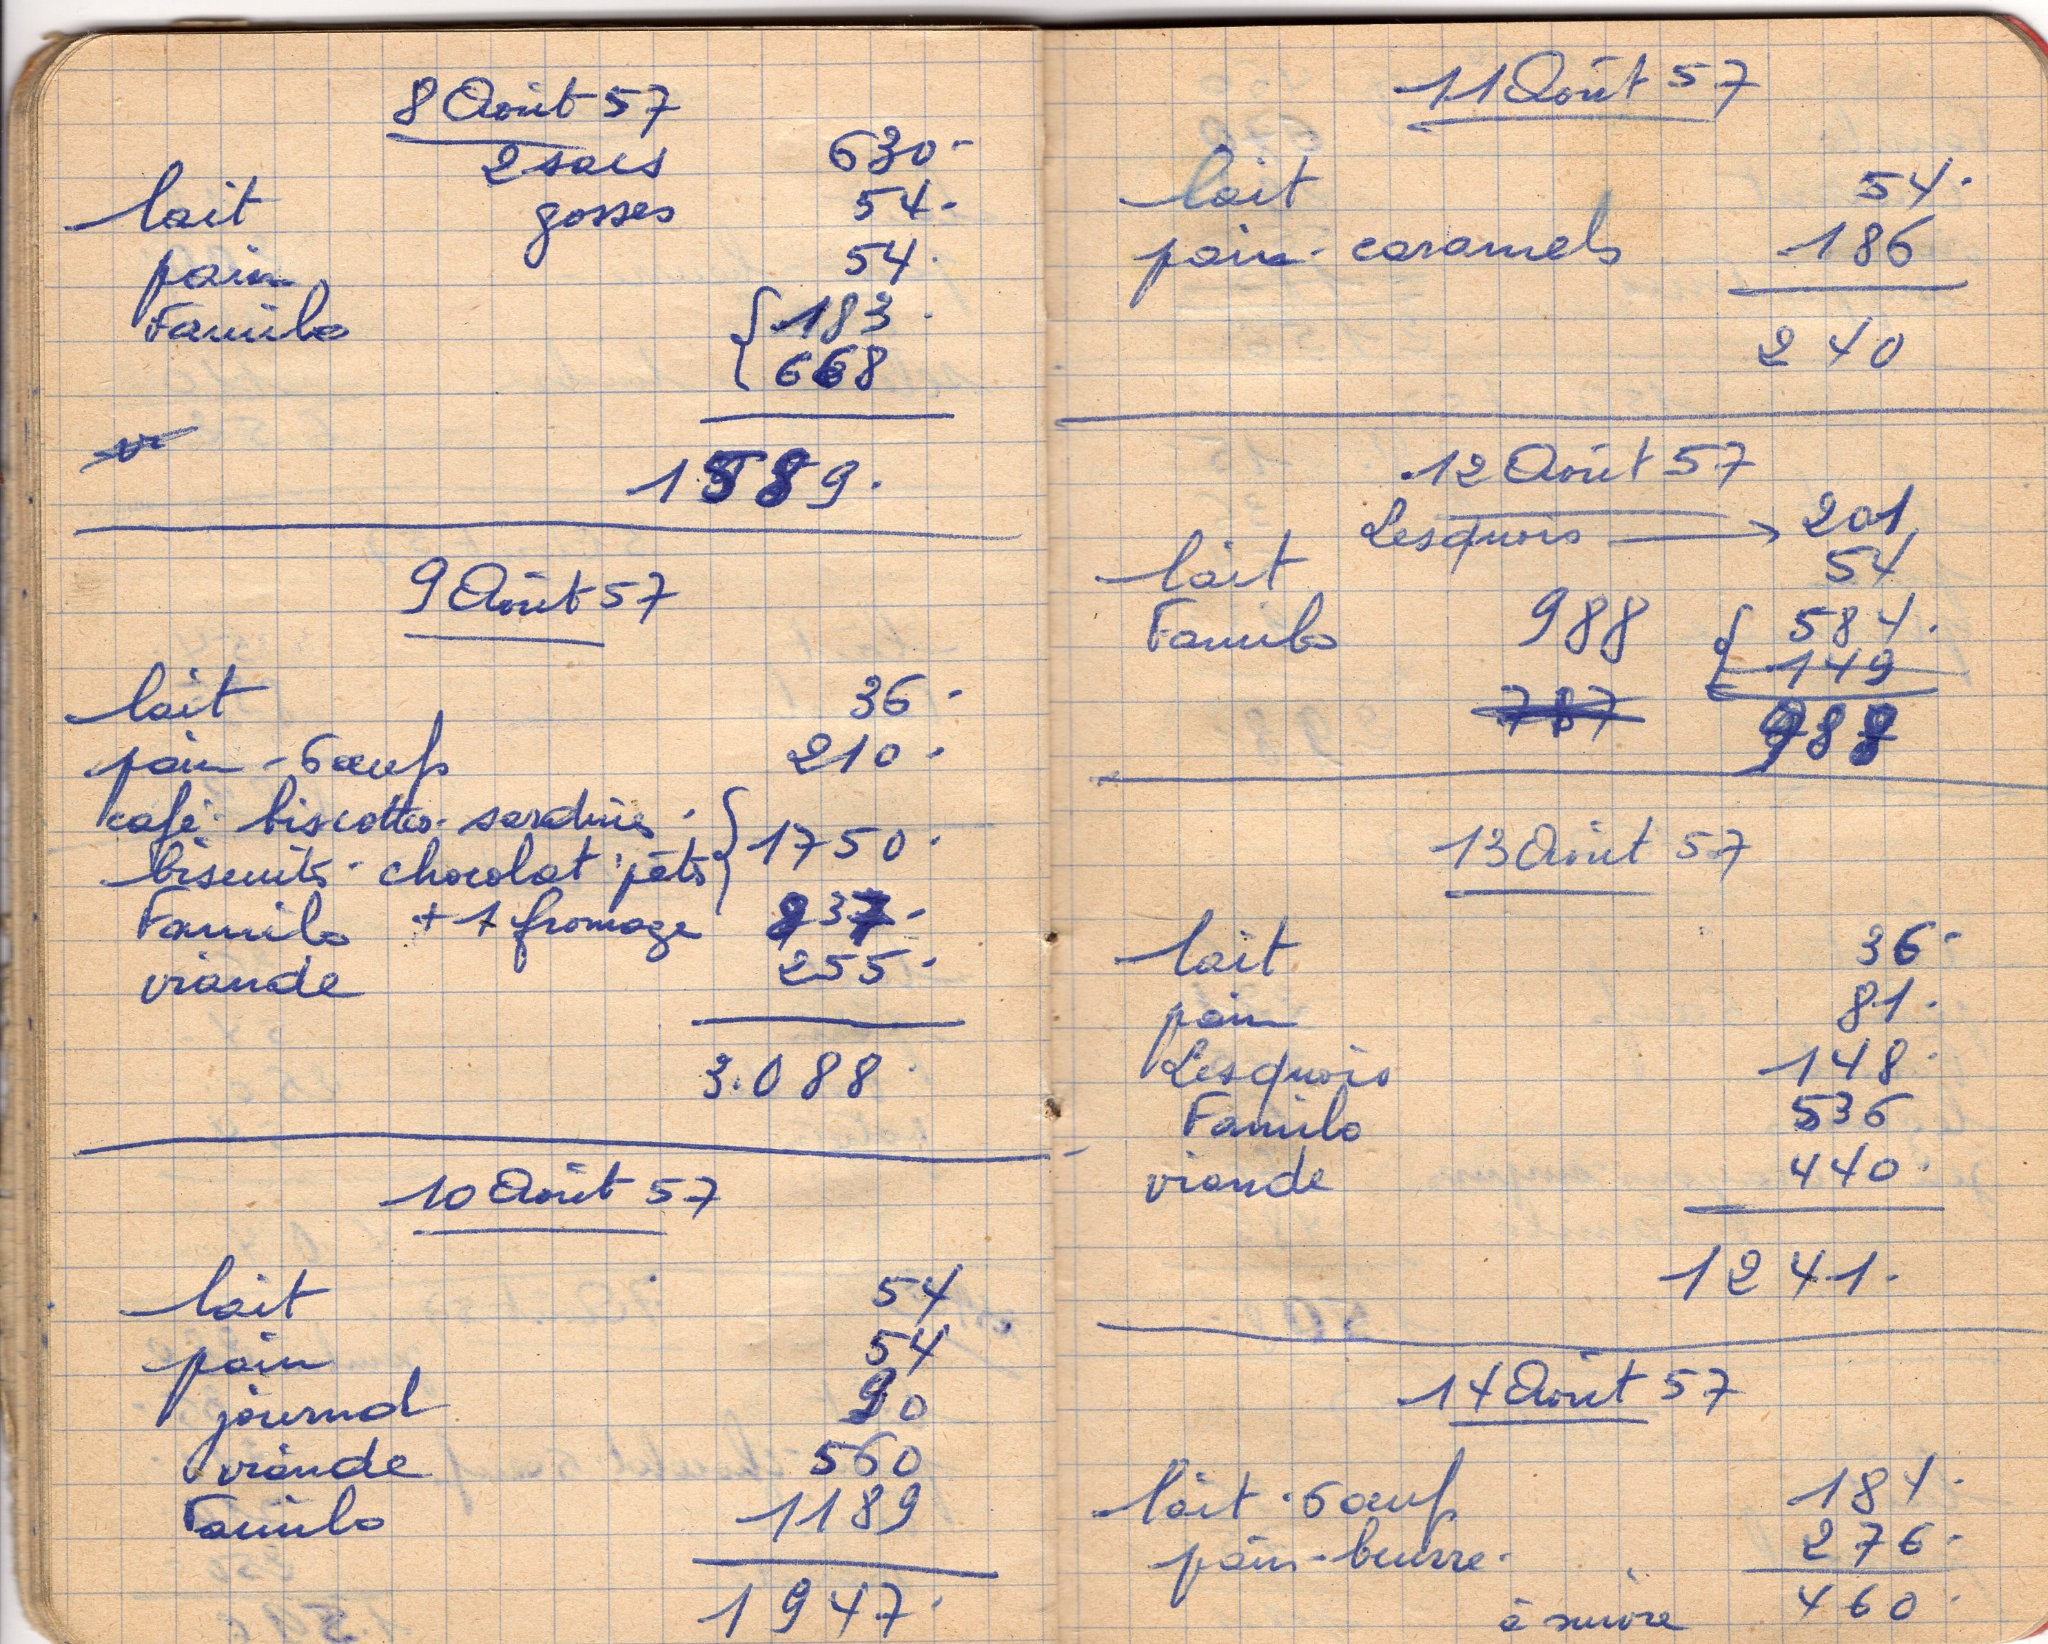 8 Août 57
2 sacs 630.-
lait gosses 54.-
pain 54.
Familo { 183.
668
1589.
9 Août 57
lait 36.-
pain - 6 œufs 210.-
café. biscottes. sardines. { 1750.-
biscuits. chocolat. pâtes
Familo + 1 fromage 837.-
viande 255.-
3.088.
10 Août 57
lait 54
pain 54
journal 90
viande 560
Familo 1189
1947.
11 Août 57
lait 54.-
pain - caramels 186
240
12 Août 57
Lesquois → 201
lait 54
Familo 988 { 584.
149
787 988
13 Août 57
lait 36.-
pain 81.-
Lesquois 148.-
Familo 536
viande 440.
1241.-
14 Août 57
lait. 6 œufs 184.-
pain - beurre. 276.-
à suivre 460.